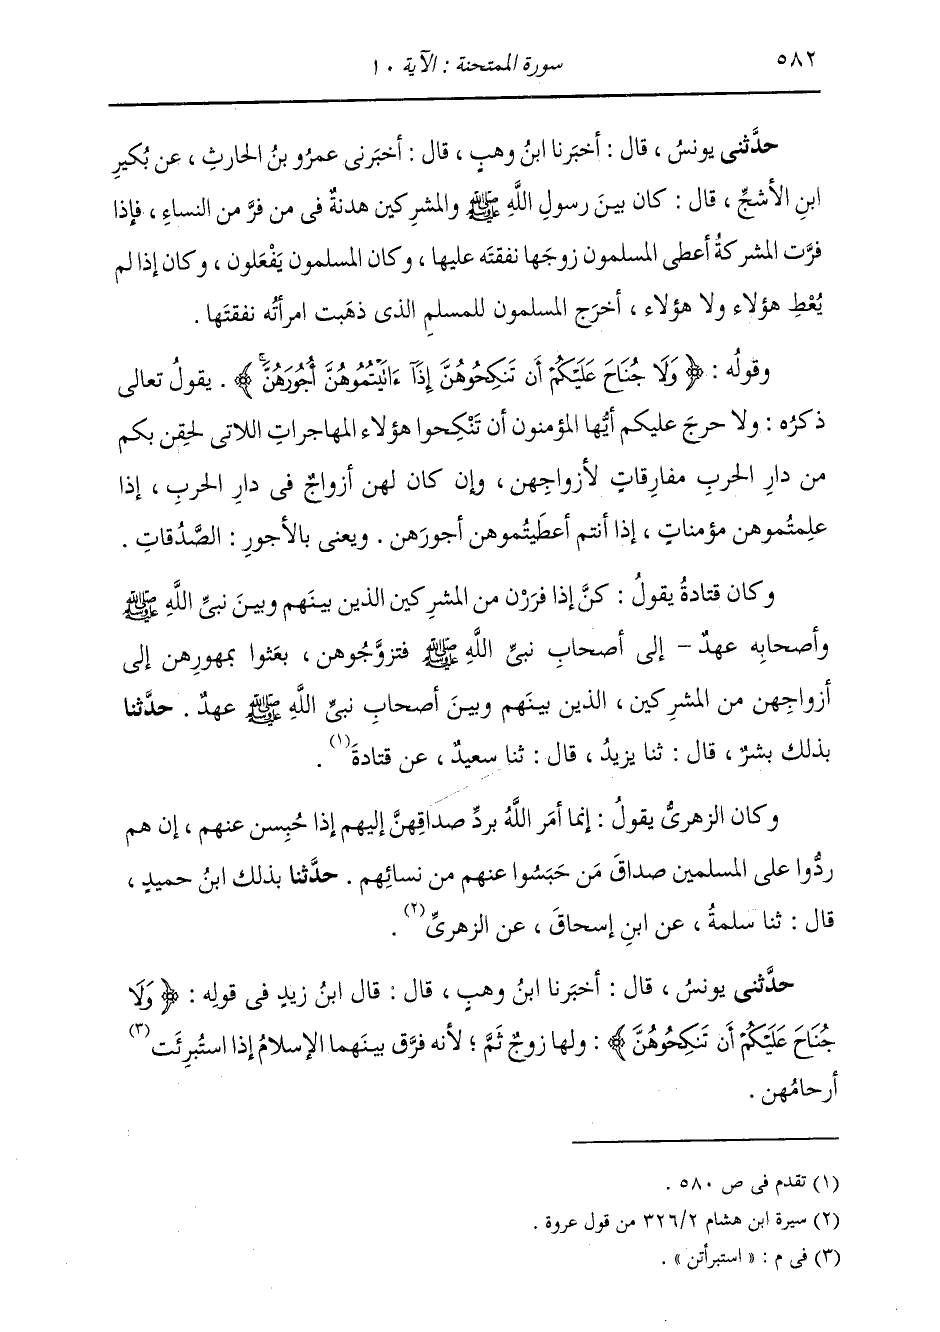 ٥٨٢
سورة الممتحنة : الآية ١٠
حدَّثنى يونسُ ، قال : أخبَرنا ابنُ وهبٍ ، قال : أخبَرنى عمرُو بنُ الحارثِ ، عن بُكيرِ
ابنِ الأشجِّ ، قال : كان بينَ رسولِ اللَّهِ ﷺ والمشرِكين هدنةٌ فى من فرَّ من النساءِ ، فإذا
فرَّت المشركةُ أعطى المسلمون زوجَها نفقتَه عليها ، وكان المسلمون يَفْعَلون ، وكان إذا لم
يُعْطِ هؤلاء ولا هؤلاء ، أخرَج المسلمون للمسلمِ الذى ذهَبت امرأتُه نفقتَها .
وقولُه : ﴿ وَلَا جُنَاحَ عَلَيْكُمْ أَن تَنكِحُوهُنَّ إِذَآ ءَانَيْتُمُوهُنَّ أُجُورَهُنَّۚ ﴾ . يقولُ تعالى
ذكرُه : ولا حرجَ عليكم أيُّها المؤمنون أن تَنْكِحوا هؤلاء المهاجراتِ اللاتى لحِقن بكم
من دارِ الحربِ مفارقاتٍ لأزواجِهن ، وإن كان لهن أزواجٌ فى دارِ الحربِ ، إذا
علِمتُموهن مؤمناتٍ ، إذا أنتم أعطَيتُموهن أجورَهن . ويعنى بالأجورِ : الصَّدُقاتِ .
وكان قتادةُ يقولُ : كنَّ إذا فرَرْن من المشرِكين الذين بينَهم وبينَ نبىِّ اللَّهِ ﷺ
وأصحابِه عهدٌ - إلى أصحابِ نبىِّ اللَّهِ ﷺ فتزوَّجُوهن ، بعَثوا بمهورِهن إلى
أزواجِهن من المشرِكين ، الذين بينَهم وبينَ أصحابِ نبىِّ اللَّهِ ﷺ عهدٌ . حدَّثنا
بذلك بشرٌ ، قال : ثنا يزيدُ ، قال : ثنا سعيدٌ ، عن قتادةَ (١) .
وكان الزهرىُّ يقولُ : إنما أمَر اللَّهُ بردِّ صداقِهنَّ إليهم إذا حُبِسن عنهم ، إن هم
ردُّوا على المسلمين صداقَ مَن حَبَسُوا عنهم من نسائِهم . حدَّثنا بذلك ابنُ حميدٍ ،
قال : ثنا سلمةُ ، عن ابنِ إسحاقَ ، عن الزهرىِّ (٢) .
حدَّثنى يونسُ ، قال : أخبَرنا ابنُ وهبٍ ، قال : قال ابنُ زيدٍ فى قولِه : ﴿ وَلَا
جُنَاحَ عَلَيْكُمْ أَن تَنكِحُوهُنَّ ﴾ : ولها زوجٌ ثَمَّ ؛ لأنه فرَّق بينَهما الإسلامُ إذا استُبرِئَت (٣)
أرحامُهن .
(١) تقدم فى ص ٥٨٠ .
(٢) سيرة ابن هشام ٣٢٦/٢ من قول عروة .
(٣) فى م : « استبرأتن » .